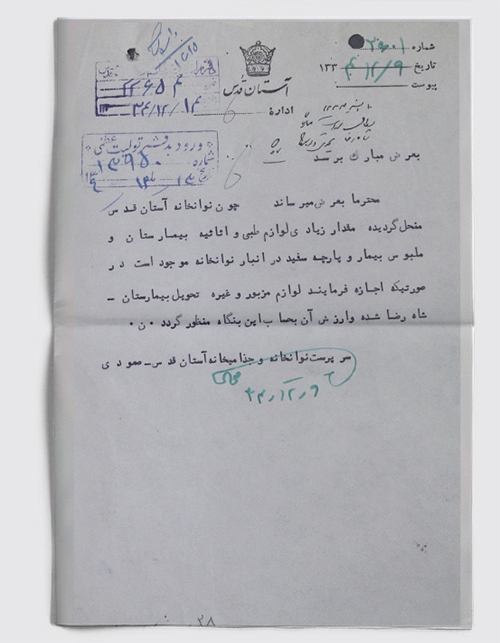 شماره ۳۶۰۰۱
تاریخ ۱۳۳۴/۱۲/۹
پیوست
آستان قدس
اداره
۲۲۶۵۴
۳۴/۱۲/۱۴
ورود بدفتر تولیت عظمی
شماره ۱۳۹۵۰
بعرض مبارک برسد
محترما بعرض میرساند چون نوانخانه آستان قدس
منحل گردیده مقدار زیادی لوازم طبی و اثاثیه بیمارستان و
ملبوس بیمار و پارچه سفید در انبار نوانخانه موجود است در
صورتیکه اجازه فرمایند لوازم مزبور و غیره تحویل بیمارستان ـ
شاه رضا شده وارزش آن بحساب این بنگاه منظور گردد ۰ن۰
سرپرست نوانخانه و جذامیخانه آستان قدس ـ عمودی
۳۴٫۱۲٫۹
۲۸